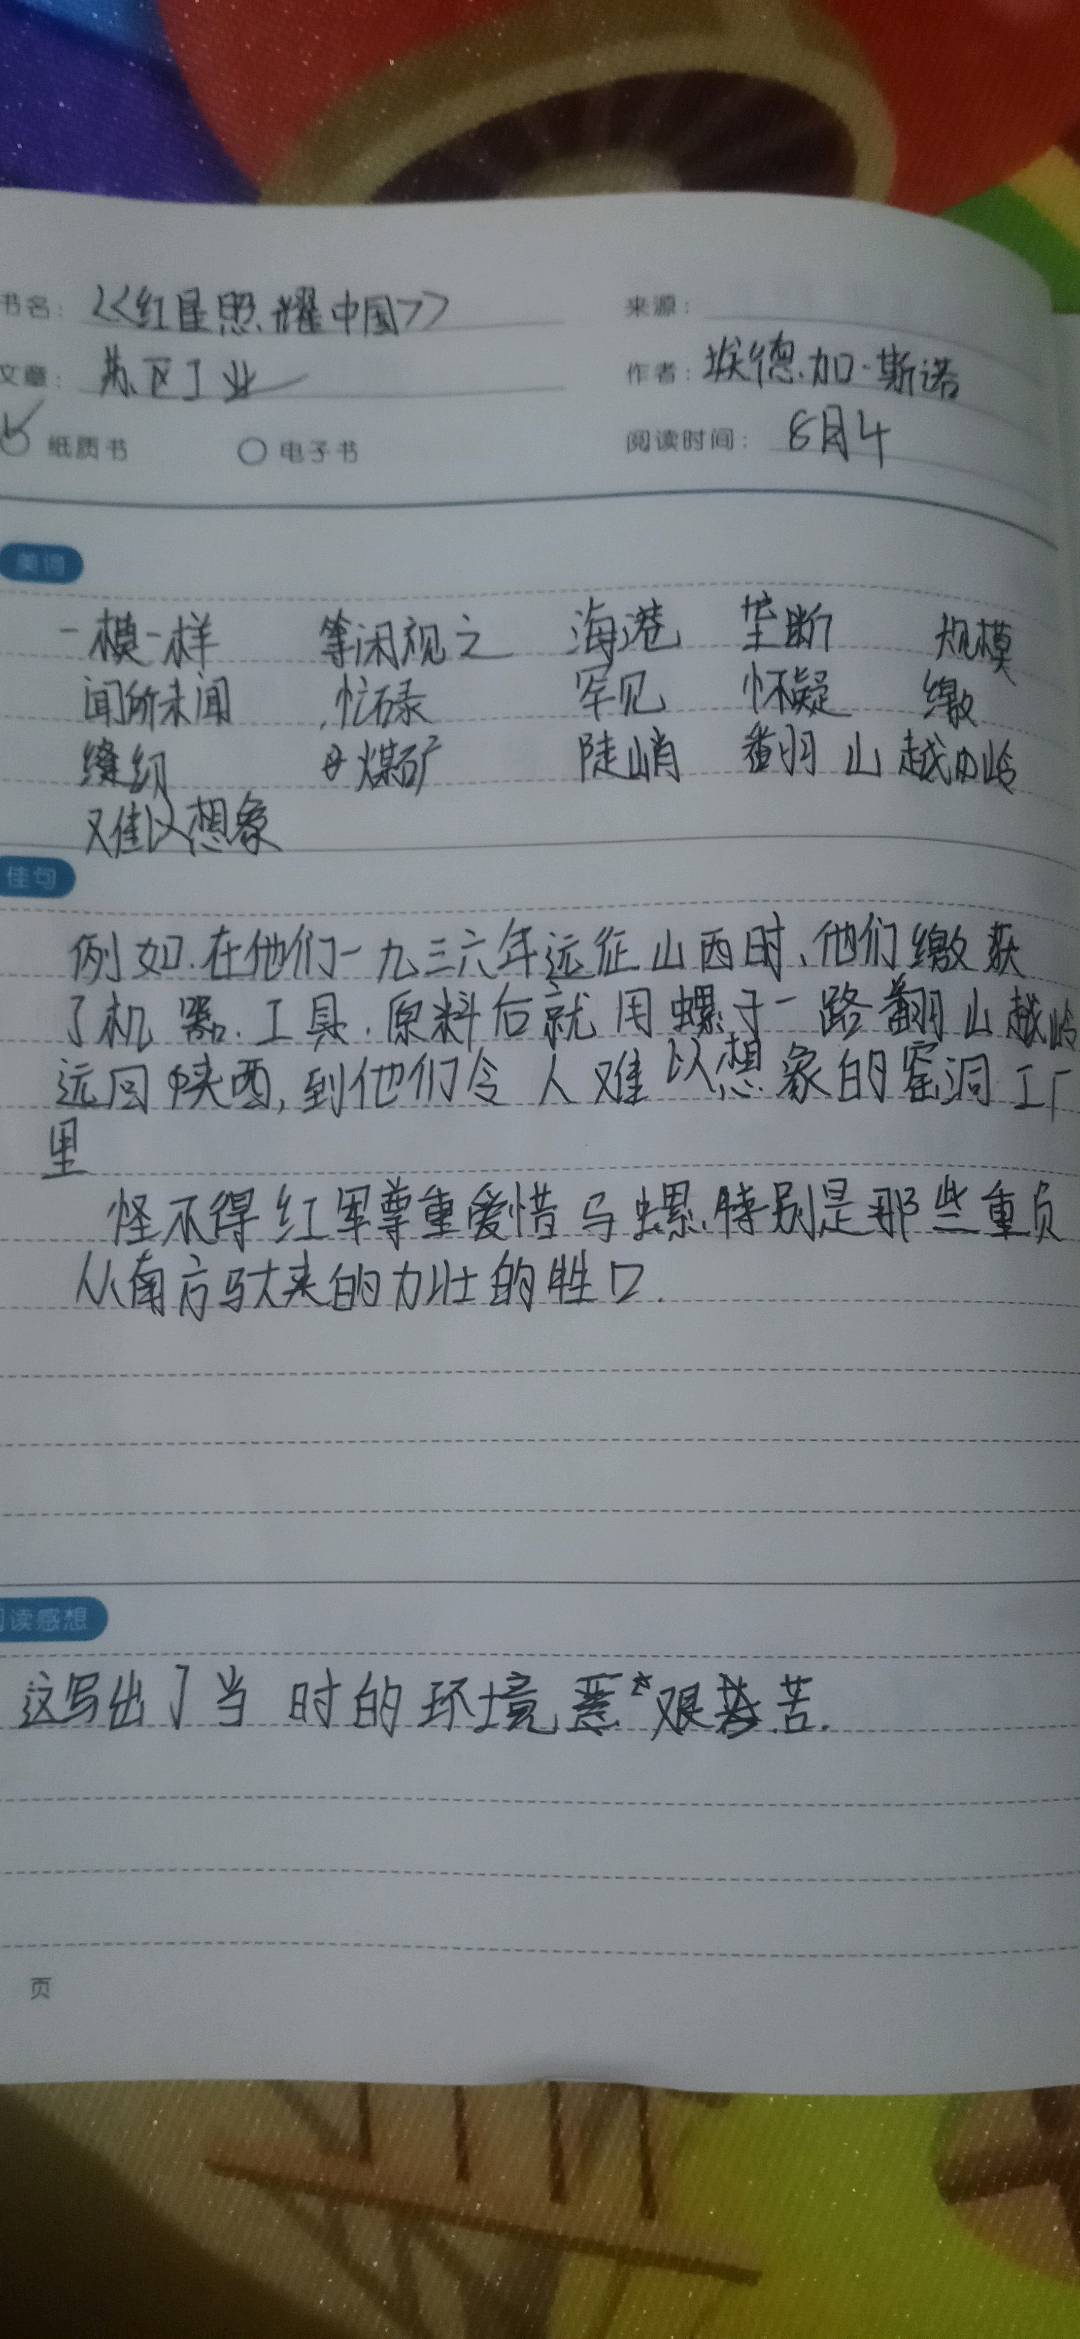 书名： <<红星照耀中国>>
来源：
文章： 苏区工业
作者： 埃德.加·斯诺
纸质书 电子书
阅读时间： 8月4
美词
一模一样 等闲视之 海港 垄断 规模
闻所未闻 忙碌 罕见 怀疑 缴
缝纫 煤矿 陡峭 翻山越岭
难以想象
佳句
例如.在他们一九三六年远征山西时、他们缴获
了机器.工具.原料后就用螺子一路翻山越岭
远回陕西,到他们令人难以想象的窑洞工厂
里
怪不得红军尊重爱惜马螺.特别是那些重负
从南方驮来的力壮的牲口.
阅读感想
这写出了当时的环境艰苦.
页